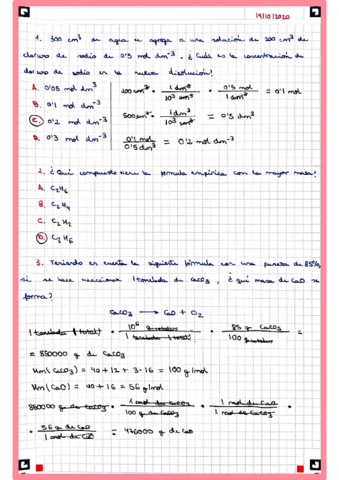 19/10/2020
1. 300 cm³ de agua se agrega a una solución de 200 cm³ de
cloruro de sodio de 0'5 mol dm⁻³. ¿Cuál es la concentración de
cloruro de sodio en la nueva disolución?
A. 0'05 mol dm³
B. 0'1 mol dm⁻³
C. 0'2 mol dm⁻³
D. 0'3 mol dm⁻³
200 cm³ · 1 dm³ / 10³ cm³ · 0'5 mol / 1 dm³ = 0'1 mol
500 cm³ · 1 dm³ / 10³ cm³ = 0'5 dm³
0'1 mol / 0'5 dm³ = 0'2 mol dm⁻³
2. ¿Qué compuesto tiene la fórmula empírica con la mayor masa?
A. C₂H₆
B. C₂H₄
C. C₂H₂
D. C₃H₆
3. Teniendo en cuenta la siguiente fórmula con una pureza de 85%,
si se hace reaccionar 1 tonelada de CaCO₃, ¿qué masa de CaO se
forma?
CaCO₃ → CaO + O₂
1 tonelada (total) · 10⁶ g totales / 1 tonelada (total) · 85 g CaCO₃ / 100 g totales =
= 850000 g de CaCO₃
Mm(CaCO₃) = 40 + 12 + 3 · 16 = 100 g/mol
Mm(CaO) = 40 + 16 = 56 g/mol
850000 g de CaCO₃ · 1 mol de CaCO₃ / 100 g de CaCO₃ · 1 mol de CaO / 1 mol de CaCO₃ ·
· 56 g de CaO / 1 mol de CaO = 476000 g de CaO